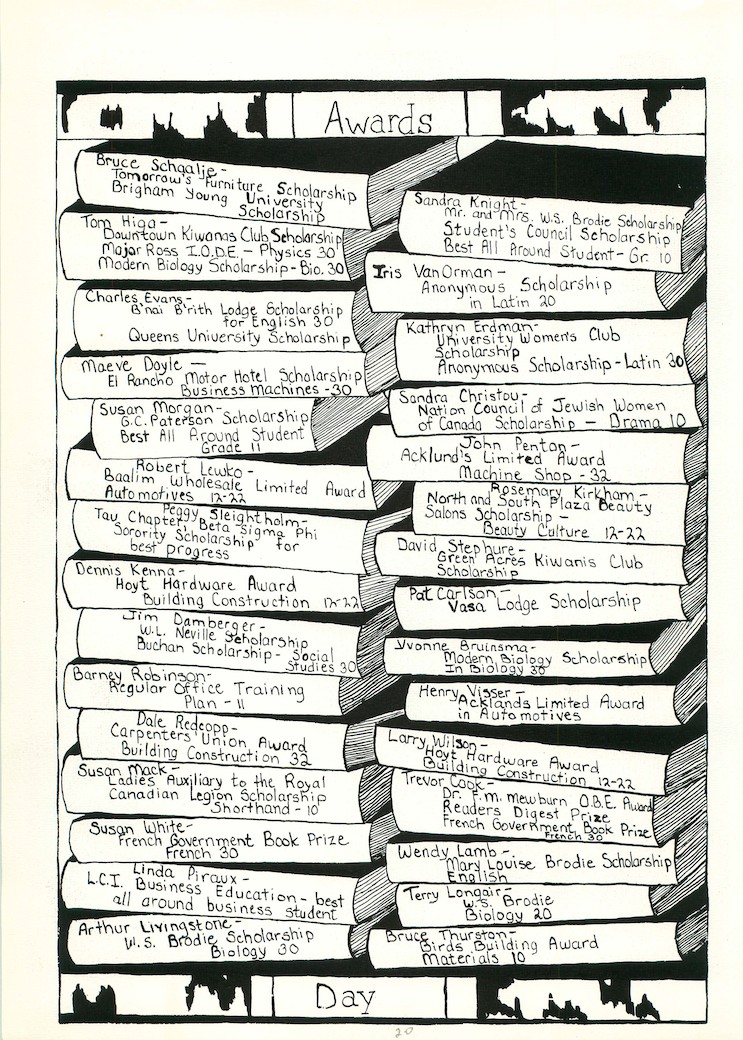 Awards
Bruce Schgalje-
Tomorrow's Furniture Scholarship
Brigham Young University
Scholarship
Tom Higa-
Downtown Kiwanas Club Scholarship
Major Ross I.O.D.E. - Physics 30
Modern Biology Scholarship - Bio. 30
Charles Evans-
B'nai B'rith Lodge Scholarship
for English 30
Queens University Scholarship
Maeve Doyle -
El Rancho Motor Hotel Scholarship
Business Machines - 30
Susan Morgan-
G.C. Paterson Scholarship
Best All Around Student
Grade 11
Robert Lewko-
Baalim Wholesale Limited Award
Automotives 12-22
Peggy Sleightholm-
Tau Chapter Beta Sigma Phi
Sorority Scholarship for
best progress
Dennis Kenna-
Hoyt Hardware Award
Building Construction 12-22
Jim Damberger-
W.L. Neville Scholarship
Buchan Scholarship - Social
Studies 30
Barney Robinson-
Regular Office Training
Plan - 11
Dale Redcopp-
Carpenters' Union Award
Building Construction 32
Susan Mack-
Ladies Auxiliary to the Royal
Canadian Legion Scholarship
Shorthand - 10
Susan White-
French Government Book Prize
French 30
Linda Piraux-
L.C.I. Business Education - best
all around business student
Arthur Livingstone-
W.S. Brodie Scholarship
Biology 30
Sandra Knight-
Mr. and Mrs. W.S. Brodie Scholarship
Student's Council Scholarship
Best All Around Student - Gr. 10
Iris VanOrman-
Anonymous Scholarship
in Latin 20
Kathryn Erdman-
University Women's Club
Scholarship
Anonymous Scholarship - Latin 30
Sandra Christou-
Nation Council of Jewish Women
of Canada Scholarship - Drama 10
John Penton-
Acklund's Limited Award
Machine Shop - 32
Rosemary Kirkham-
North and South Plaza Beauty
Salons Scholarship -
Beauty Culture 12-22
David Stephure-
Green Acres Kiwanis Club
Scholarship
Pat Carlson-
Vasa Lodge Scholarship
Yvonne Bruinsma-
Modern Biology Scholarship
In Biology 30
Henry Visser-
Acklands Limited Award
in Automotives
Larry Wilson-
Hoyt Hardware Award
Building Construction 12-22
Trevor Cook-
Dr. F.M. Mewburn O.B.E. Award
Readers Digest Prize
French Government Book Prize
French 30
Wendy Lamb-
Mary Louise Brodie Scholarship
English
Terry Longair-
W.S. Brodie
Biology 20
Bruce Thurston-
Birds Building Award
Materials 10
Day
20